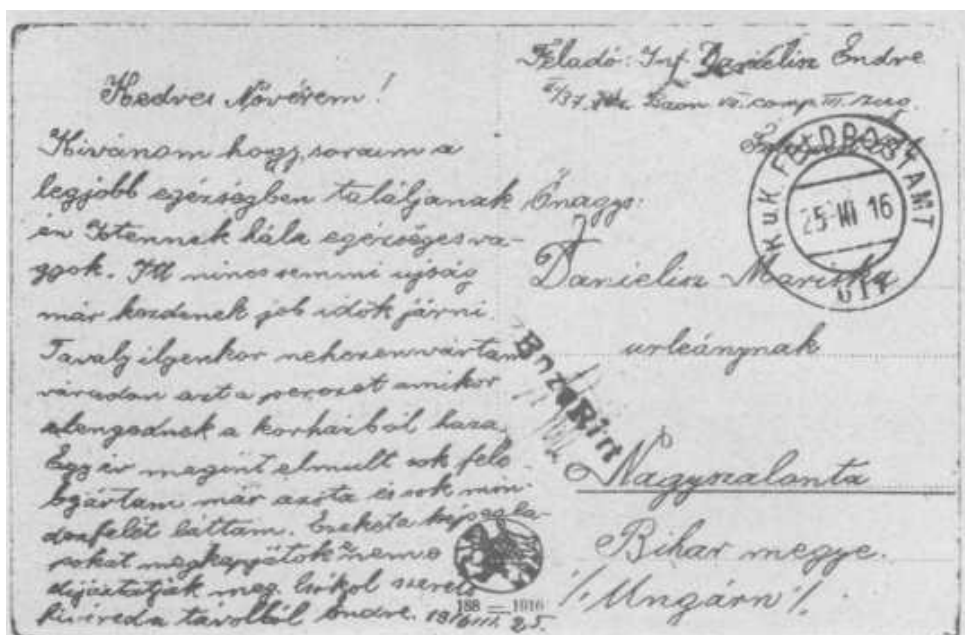 Kedves Növérem!
Kivánom hogy soraim a
legjobb egézségben találjanak
én Istennek hála egézséges va-
gyok. Itt nincs semmi ujság
már kezdenek job idök járni
Tavaly ilyenkor nehezen vártam
váradon azt a perczet amikor
elengednek a korházból haza.
Egy év megint elmult sok felé
bejártam már azota és sok min-
denfelét láttam. Ezeket a képesla-
pokat megkapjátok nem
dijáztatják meg. Csókol szerető
távolból Endre. 1916 III. 25.
Feladó: Inf. Danielisz Endre
comp. III. zug.
K.u.K. FELDPOSTAMT
25 III 16
Önagys:
Danielisz Mariska
urleánynak
Nagyszalonta
Bihar megye.
/: Ungárn :/
188 — 1916